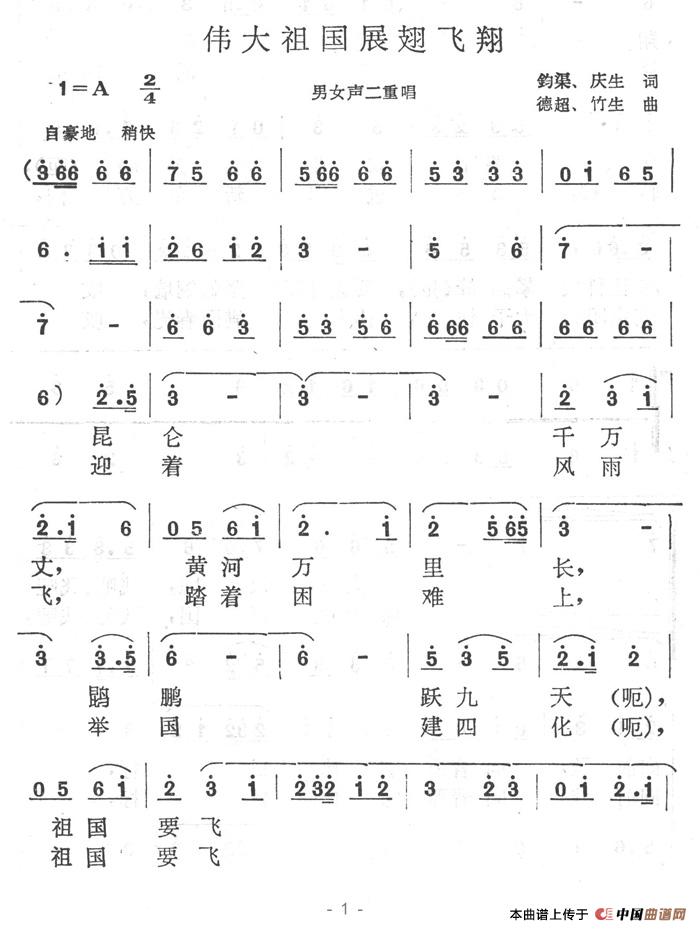 伟大祖国展翅飞翔
1=A 2/4 男女声二重唱 鈞渠、庆生 词
德超、竹生 曲
自豪地 稍快
(3 66 6 6 | 7 5 6 6 | 5 66 6 6 | 5 3 3 3 | 0 1 6 5 |
6 . 1 1 | 2 6 1 2 | 3 - | 5 6 | 7 - |
7 - | 6 6 3 | 5 3 5 6 | 6 66 6 6 | 6 6 6 6 |
6) 2.5 | 3 - | 3 - | 3 - | 2 3 1 |
昆仑 千万
迎着 风雨
2.1 6 | 0 5 6 1 | 2 . 1 | 2 5 65 | 3 - |
丈, 黄河万 里 长,
飞, 踏着困 难 上,
3 3.5 | 6 - | 6 - | 5 3 5 | 2.1 2 |
鹍鹏 跃九天(呃),
举国 建四化(呃),
0 5 6 1 | 2 3 1 | 2 32 1 2 | 3 2 3 | 0 1 2.1 |
祖国 要飞
祖国 要飞
- 1 -
本曲谱上传于 中国曲谱网